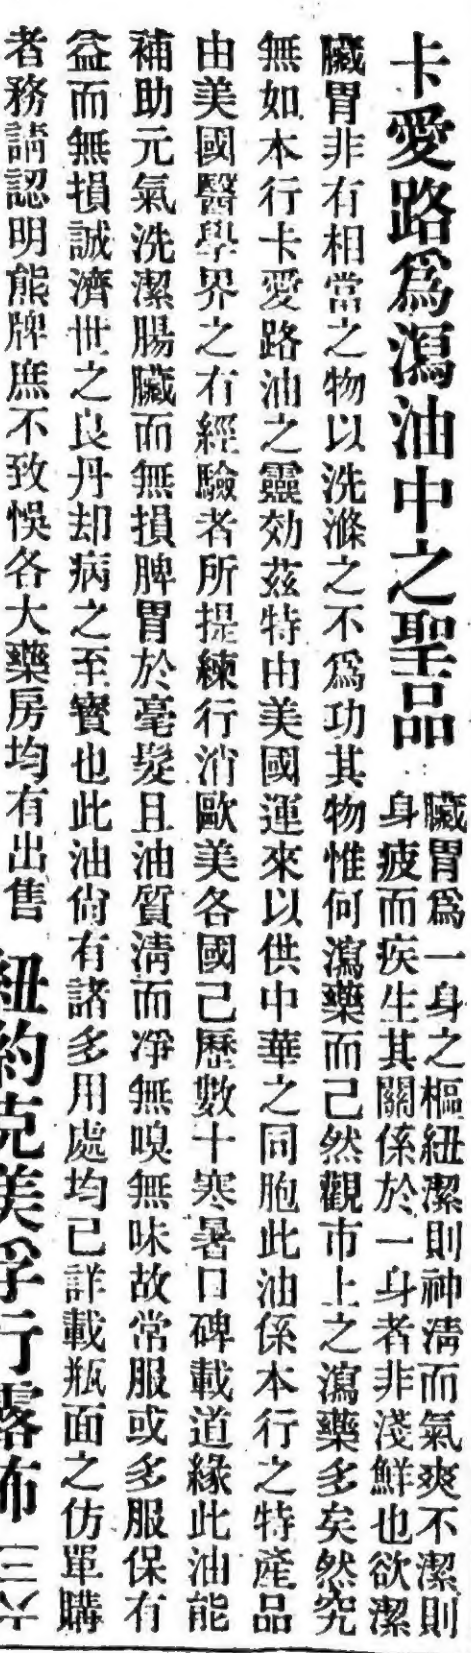 卡愛路爲瀉油中之聖品
臟胃爲一身之樞紐潔則神淸而氣爽不潔則
身疲而疾生其關係於一身者非淺鮮也欲潔
臟胃非有相當之物以洗滌之不爲功其物惟何瀉藥而已然觀市上之瀉藥多矣然究
無如本行卡愛路油之靈効茲特由美國運來以供中華之同胞此油係本行之特產品
由美國醫學界之有經驗者所提練行消歐美各國己歷數十寒暑口碑載道緣此油能
補助元氣洗潔腸臟而無損脾胃於毫髮且油質淸而凈無嗅無味故常服或多服保有
益而無損誠濟世之良丹却病之至寶也此油尙有諸多用處均已詳載瓶面之仿單購
者務請認明熊牌庶不致悞各大藥房均有出售
紐約克美孚行露布